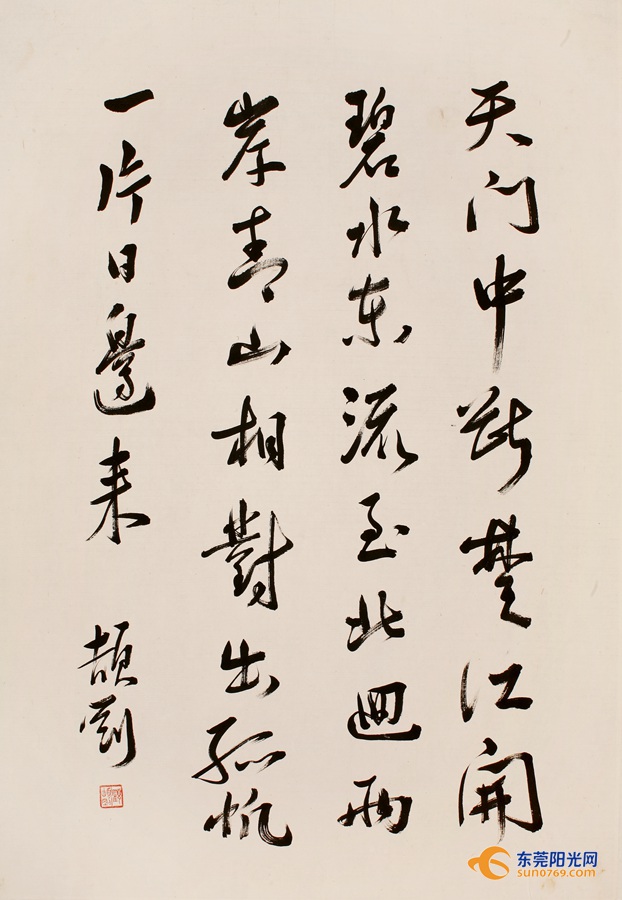 天门中断楚江開
碧水东流至此迴两
岸青山相對出孤帆
一片日邊来
頡剛
东莞阳光网
sun0769.com